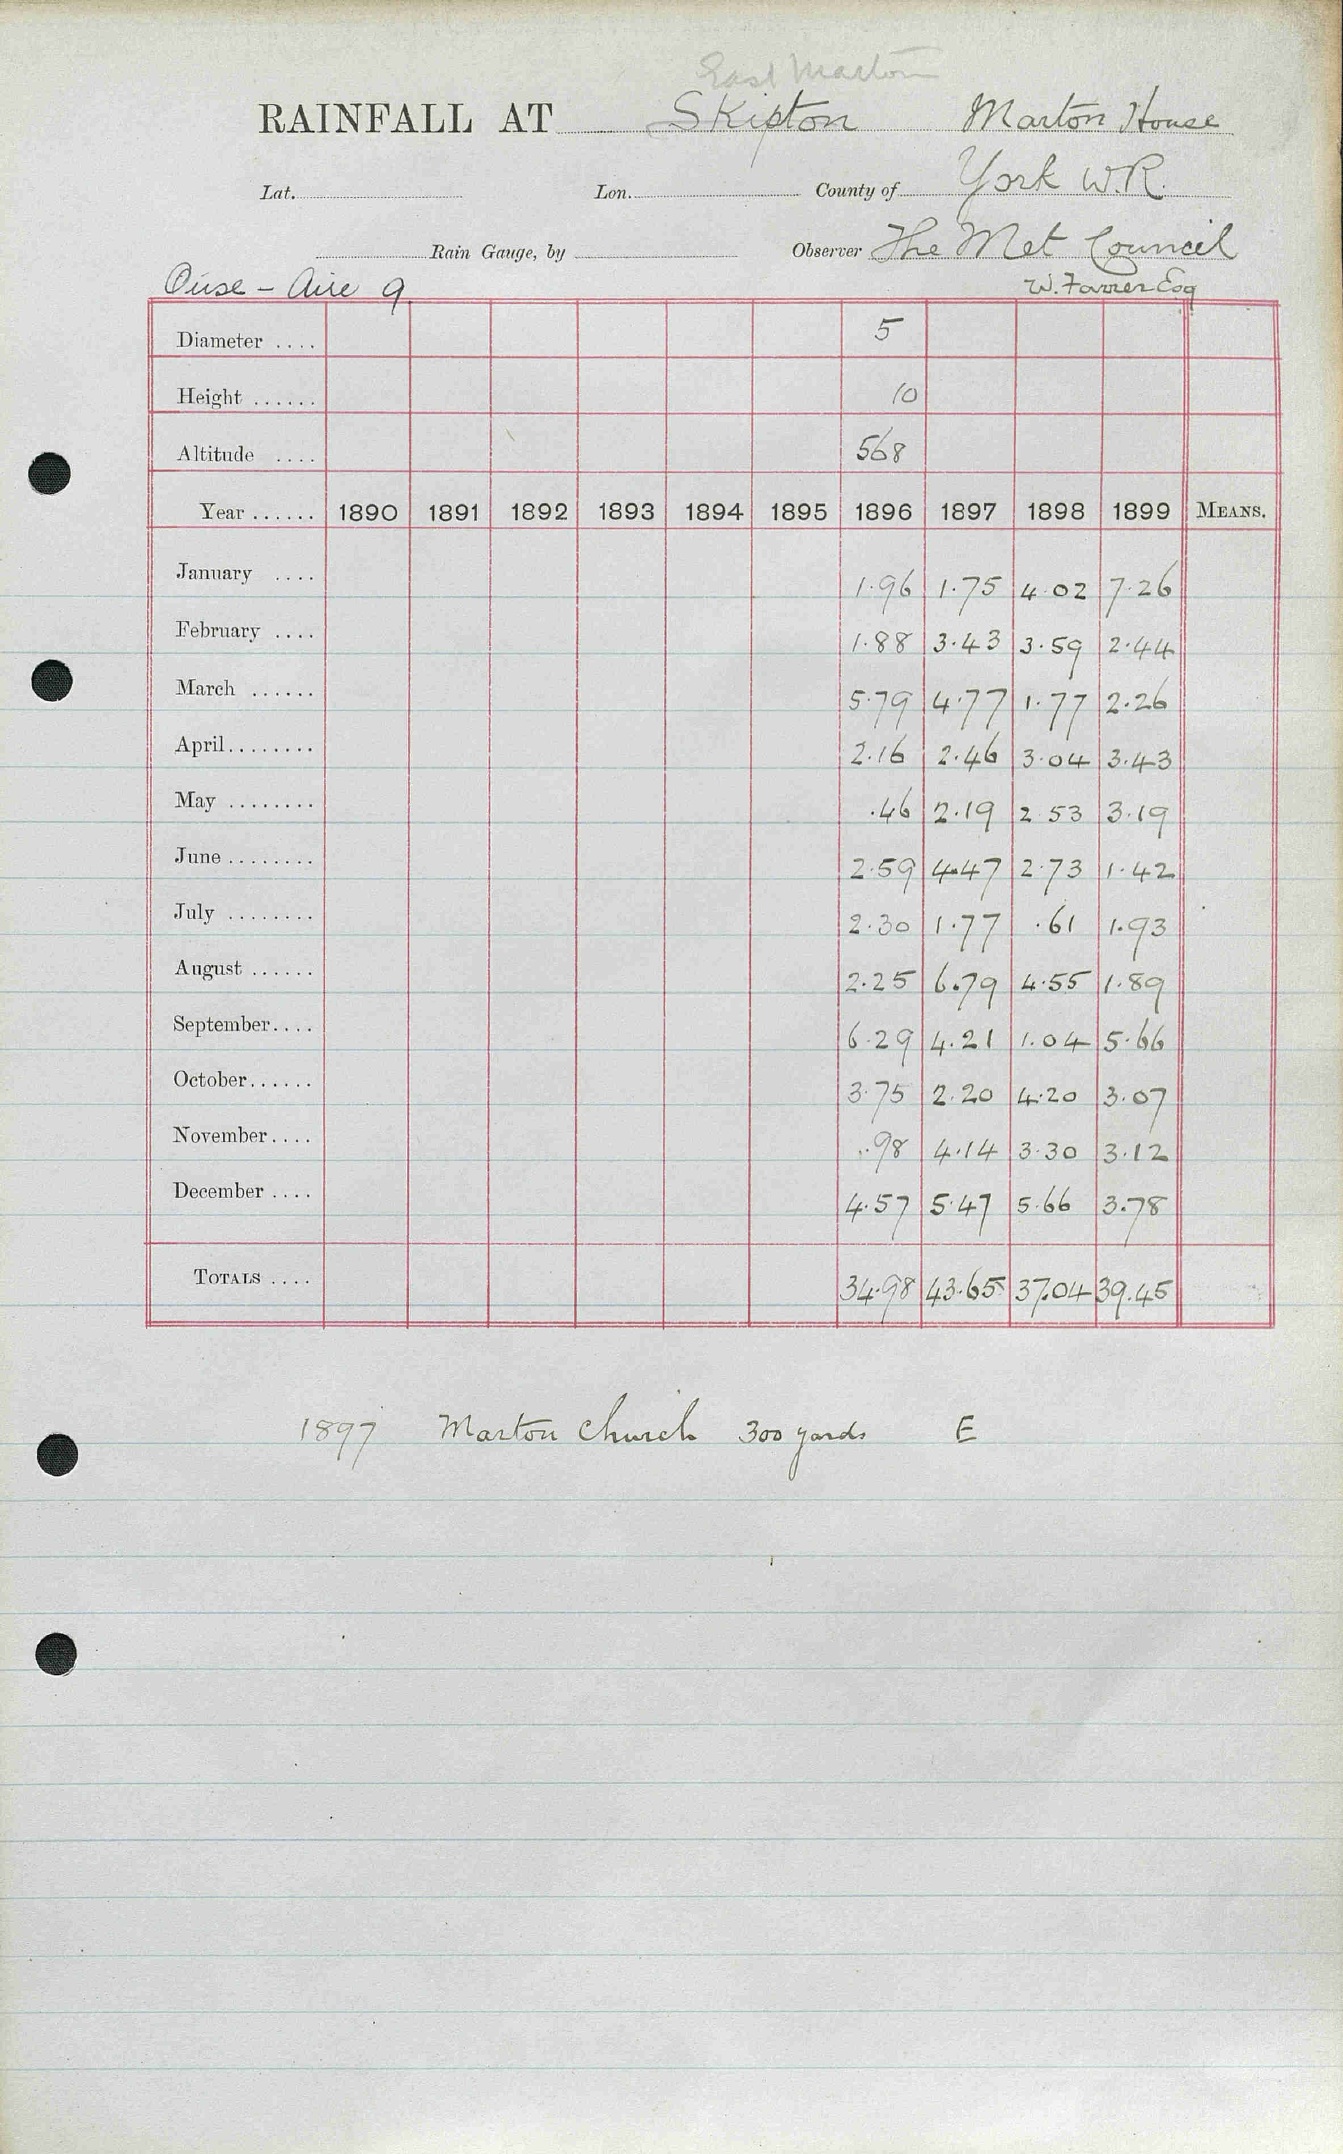 East Marton
RAINFALL AT Skipton Marton House
Lat. Lon. County of York W.R.
Rain Gauge, by Observer The Met Council
Ouse - Aire 9 W. Farrer Esq
Diameter .... 5
Height ...... 10
Altitude .... 568
Year ...... 1890 1891 1892 1893 1894 1895 1896 1897 1898 1899 MEANS.
January .... 1.96 1.75 4.02 7.26
February .... 1.88 3.43 3.59 2.44
March ...... 5.79 4.77 1.77 2.26
April........ 2.16 2.46 3.04 3.43
May ........ .46 2.19 2.53 3.19
June ........ 2.59 4.47 2.73 1.42
July ........ 2.30 1.77 .61 1.93
August ...... 2.25 6.79 4.55 1.89
September.... 6.29 4.21 1.04 5.66
October...... 3.75 2.20 4.20 3.07
November.... .98 4.14 3.30 3.12
December .... 4.57 5.47 5.66 3.78
TOTALS .... 34.98 43.65 37.04 39.45
1897 Marton Church 300 yards E